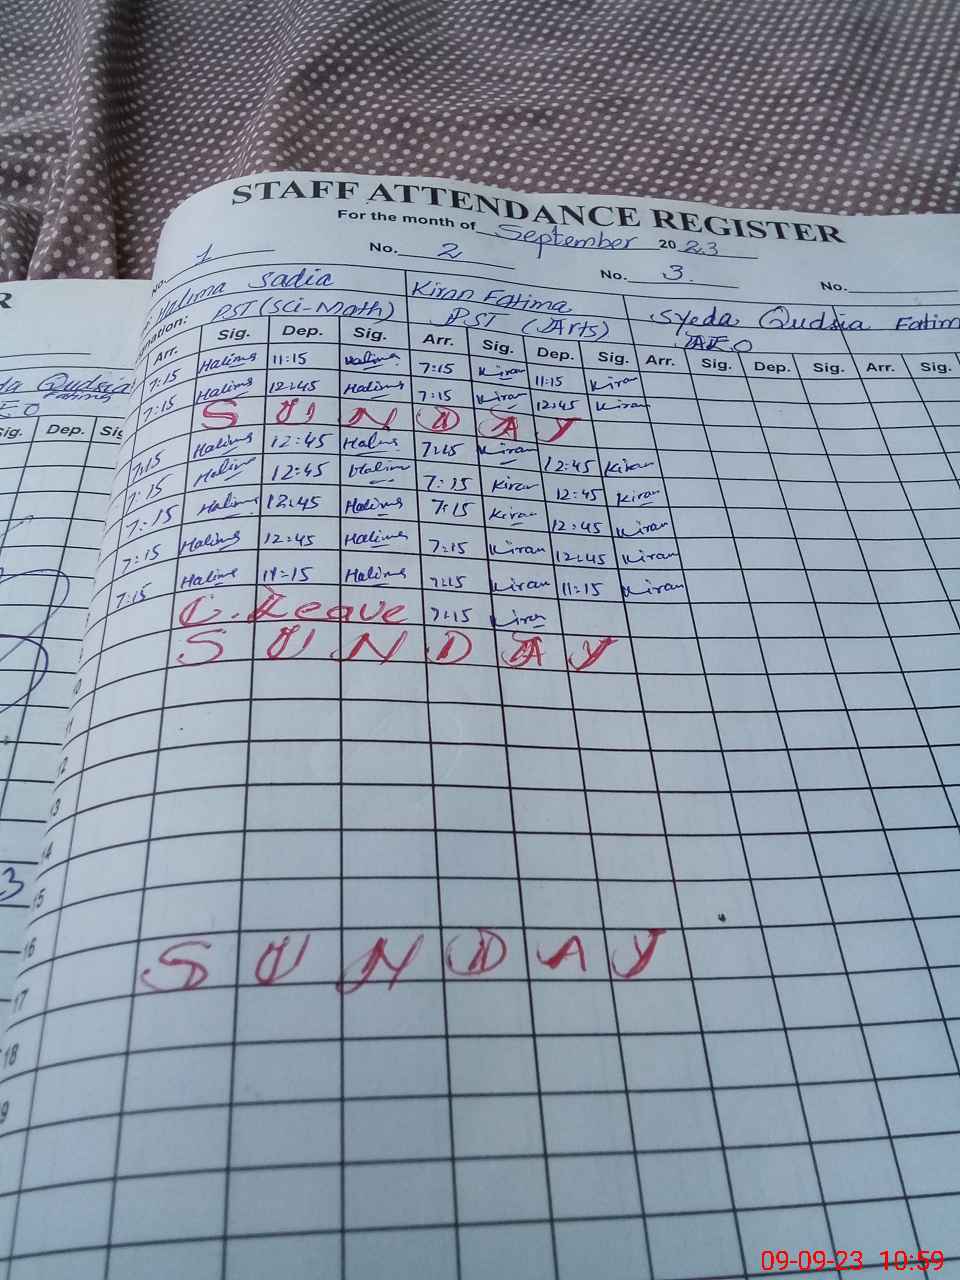 STAFF ATTENDANCE REGISTER
For the month of September 2023
No. 1 No. 2 No. 3. No.
Halima Sadia Kiran Fatima Syeda Qudsia Fatim
nation: PST (Sci-Math) PST (Arts) AEO
Arr. Sig. Dep. Sig. Arr. Sig. Dep. Sig. Arr. Sig. Dep. Sig. Arr. Sig.
7:15 Halima 11:15 Halima 7:15 Kiran 11:15 Kiran
7:15 Halima 12:45 Halima 7:15 Kiran 12:45 Kiran
S U N D A Y
7:15 Halima 12:45 Halima 7:15 Kiran 12:45 Kiran
7:15 Halima 12:45 Halima 7:15 Kiran 12:45 Kiran
7:15 Halima 12:45 Halima 7:15 Kiran 12:45 Kiran
7:15 Halima 12:45 Halima 7:15 Kiran 12:45 Kiran
7:15 Halima 11:15 Halima 7:15 Kiran 11:15 Kiran
C. Leave 7:15 Kiran
S U N D A Y
10
11
12
13
14
15
16
S U N D A Y
17
18
9
R
da Qudsia
EO Fatima
Sig. Dep. Sig
3
09-09-23 10:59